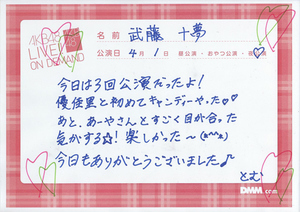 AKB48
LIVE!!
ON DEMAND
名前 武藤 十夢
公演日 4月1日 昼公演・おやつ公演・夜公演
今日は3回公演だったよ!
優佳里と初めてキャンディーやった♡♡
あと、あーやさんとすごく目が合った
気がする☆! 楽しかった〜(o^^o)
今日もありがとうございました♪
とむ
DMM.com